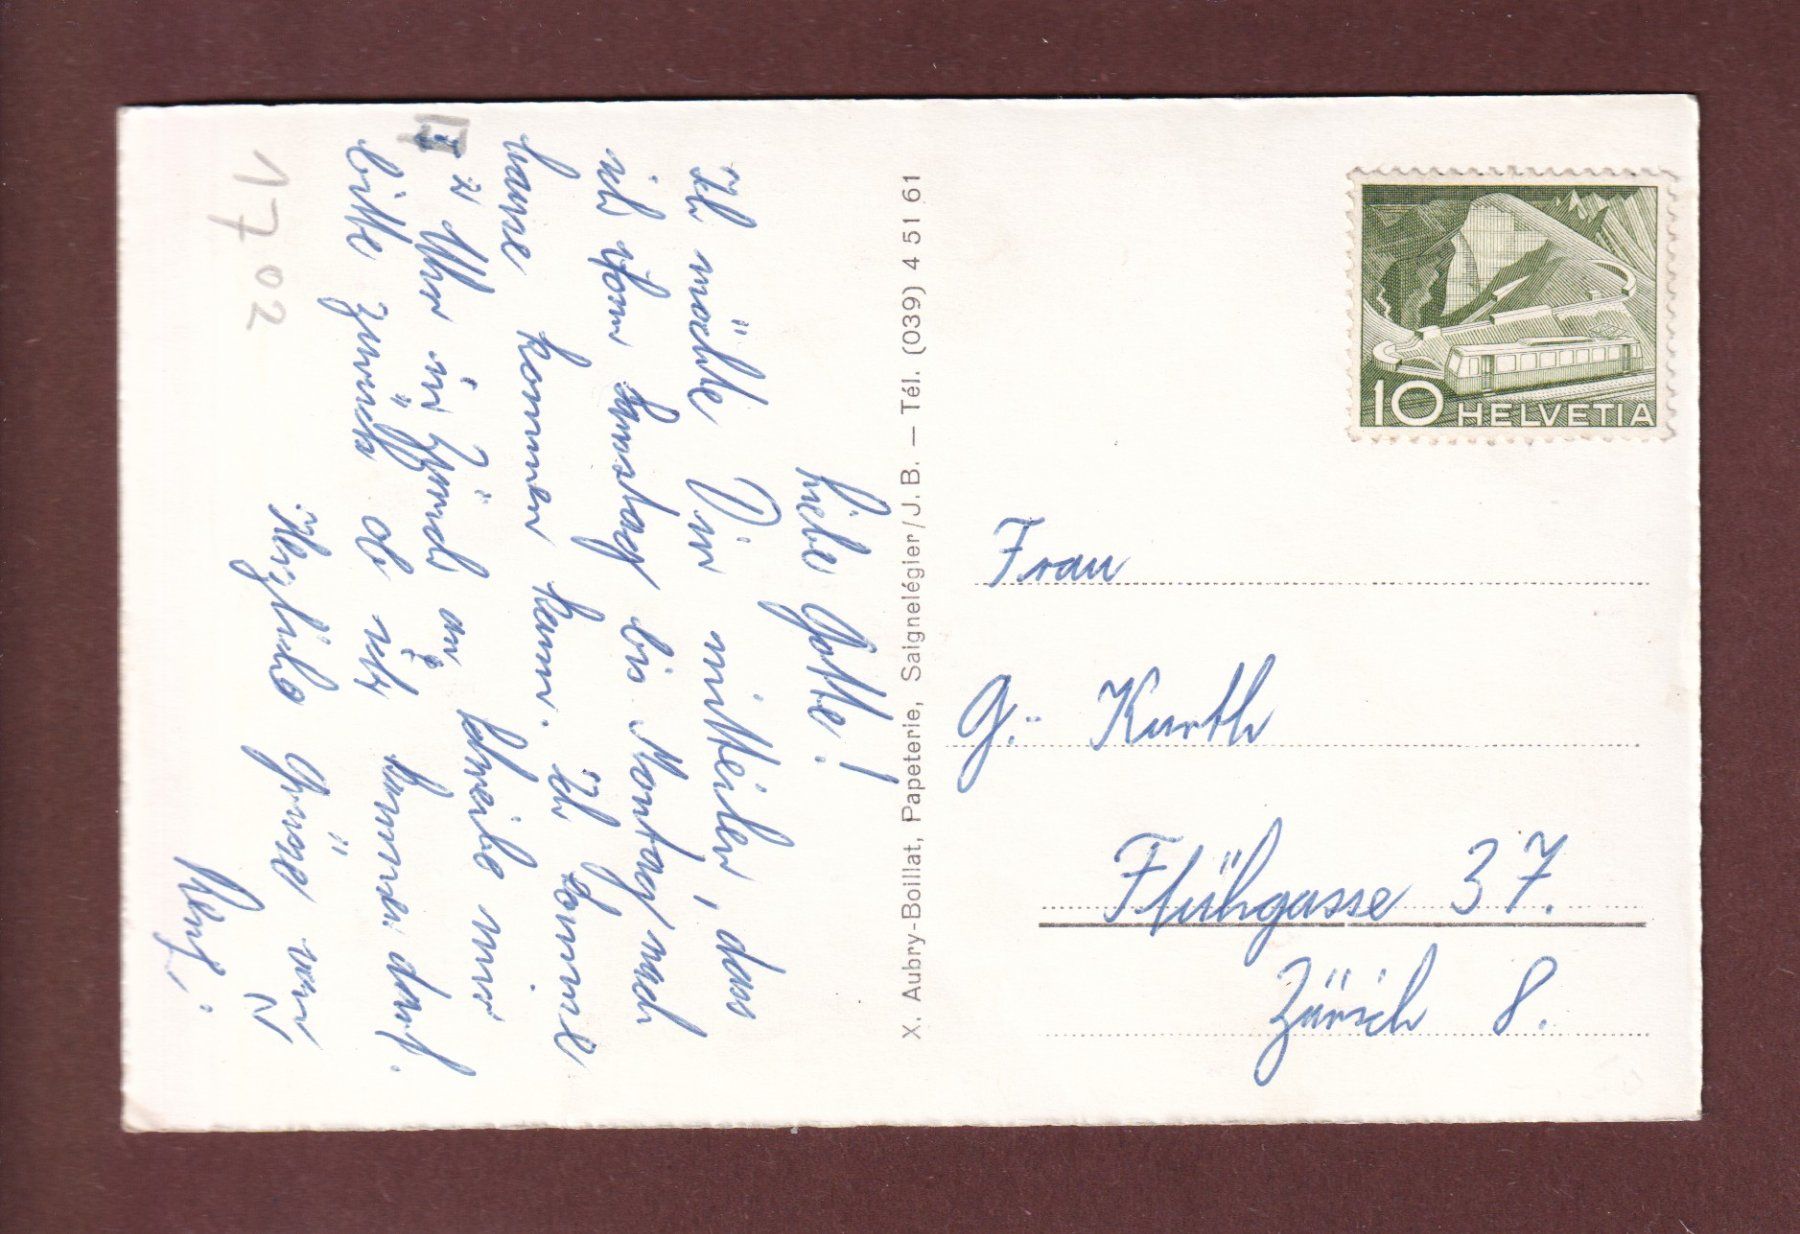 Liebe Gotte!
Ich möchte Dir mitteilen, dass
ich vom Samstag bis Montag nach
hause kommen kann. Ich komme
2 Uhr in Zürich an schreibe mir
bitte zurück ob ich kommen darf.
Herzliche Grüsse von
17 02
X. Aubry-Boillat, Papeterie, Saignelégier/J.B. — Tél. (039) 4 51 61
10 HELVETIA
Frau
G. Kurth
Flühgasse 37.
Zürich 8.